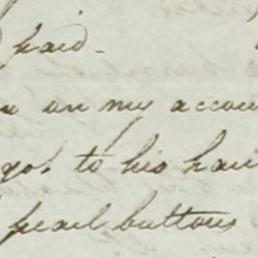 paid.
on my accou
got to his hau
pearl buttons